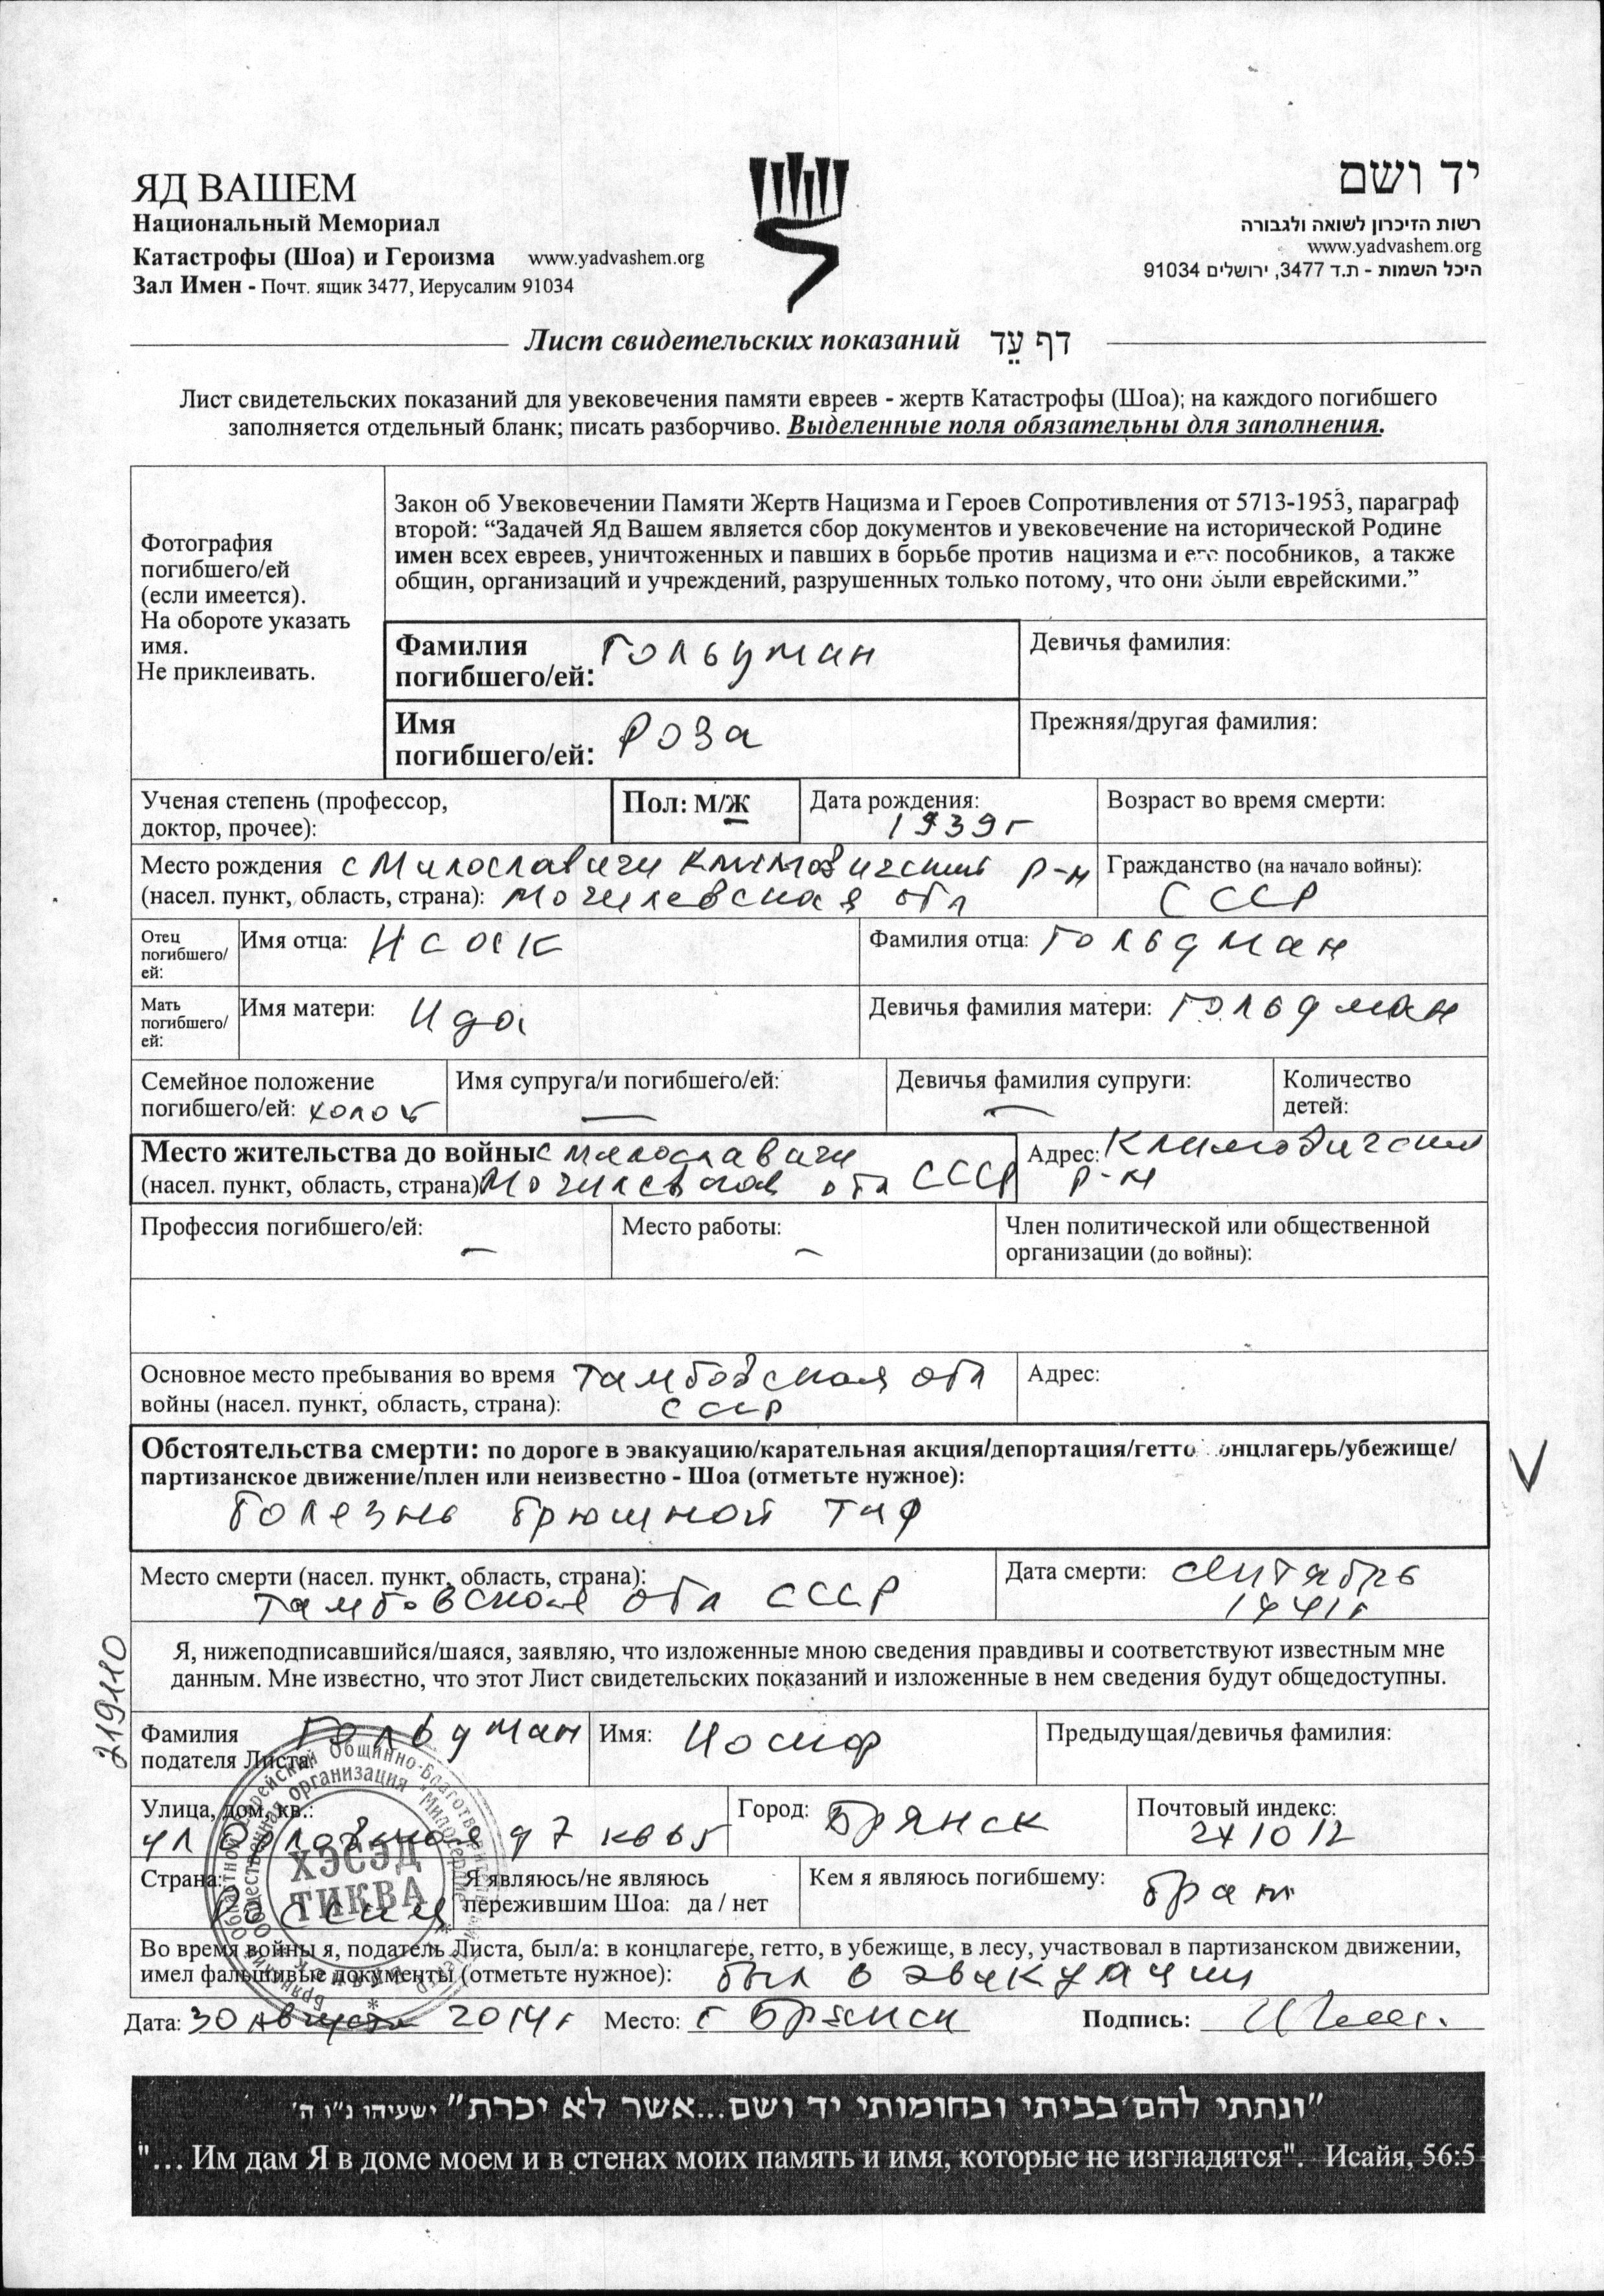 ЯД ВАШЕМ
Национальный Мемориал
Катастрофы (Шоа) и Героизма www.yadvashem.org
Зал Имен - Почт. ящик 3477, Иерусалим 91034
יד ושם
רשות הזיכרון לשואה ולגבורה
www.yadvashem.org
היכל השמות - ת.ד 3477, ירושלים 91034
Лист свидетельских показаний דף עֵד
Лист свидетельских показаний для увековечения памяти евреев - жертв Катастрофы (Шоа); на каждого погибшего
заполняется отдельный бланк; писать разборчиво. Выделенные поля обязательны для заполнения.
Фотография
погибшего/ей
(если имеется).
На обороте указать
имя.
Не приклеивать.
Закон об Увековечении Памяти Жертв Нацизма и Героев Сопротивления от 5713-1953, параграф
второй: “Задачей Яд Вашем является сбор документов и увековечение на исторической Родине
имен всех евреев, уничтоженных и павших в борьбе против нацизма и его пособников, а также
общин, организаций и учреждений, разрушенных только потому, что они были еврейскими.”
Фамилия
погибшего/ей: Гольдман
Девичья фамилия:
Имя
погибшего/ей: Роза
Прежняя/другая фамилия:
Ученая степень (профессор,
доктор, прочее):
Пол: М/Ж
Дата рождения:
1939г
Возраст во время смерти:
Место рождения с Милославичи Климовичский р-н
(насел. пункт, область, страна): Могилевская обл
Гражданство (на начало войны):
СССР
Отец
погибшего/
ей:
Имя отца: Исаак
Фамилия отца: Гольдман
Мать
погибшего/
ей:
Имя матери: Ида
Девичья фамилия матери: Гольдман
Семейное положение
погибшего/ей: холост
Имя супруга/и погибшего/ей:
—
Девичья фамилия супруги:
—
Количество
детей:
Место жительства до войны с Милославичи
(насел. пункт, область, страна) Могилевская обл СССР
Адрес: Климовичский
р-н
Профессия погибшего/ей:
—
Место работы:
—
Член политической или общественной
организации (до войны):
Основное место пребывания во время Тамбовская обл
войны (насел. пункт, область, страна): СССР
Адрес:
Обстоятельства смерти: по дороге в эвакуацию/карательная акция/депортация/гетто концлагерь/убежище/
партизанское движение/плен или неизвестно - Шоа (отметьте нужное):
болезнь брюшной тиф
V
Место смерти (насел. пункт, область, страна):
Тамбовская обл СССР
Дата смерти: сентябрь
1941г
Я, нижеподписавшийся/шаяся, заявляю, что изложенные мною сведения правдивы и соответствуют известным мне
данным. Мне известно, что этот Лист свидетельских показаний и изложенные в нем сведения будут общедоступны.
219110
Фамилия
подателя Листа: Гольдман
Имя: Иосиф
Предыдущая/девичья фамилия:
Улица, дом, кв.:
ул д 7 кв 65
Город: Брянск
Почтовый индекс:
241012
Страна:
Россия
Я являюсь/не являюсь
пережившим Шоа: да / нет
Кем я являюсь погибшему: брат
Во время войны я, податель Листа, был/а: в концлагере, гетто, в убежище, в лесу, участвовал в партизанском движении,
имел фальшивые документы (отметьте нужное): был в эвакуации
Дата: 30 августа 2014г Место: г Брянск Подпись:
ХЭСЭД
ТИКВА
"ונתתי להם בביתי ובחומותי יד ושם...אשר לא יכרת" ישעיהו נ"ו ה'
"… Им дам Я в доме моем и в стенах моих память и имя, которые не изгладятся". Исайя, 56:5